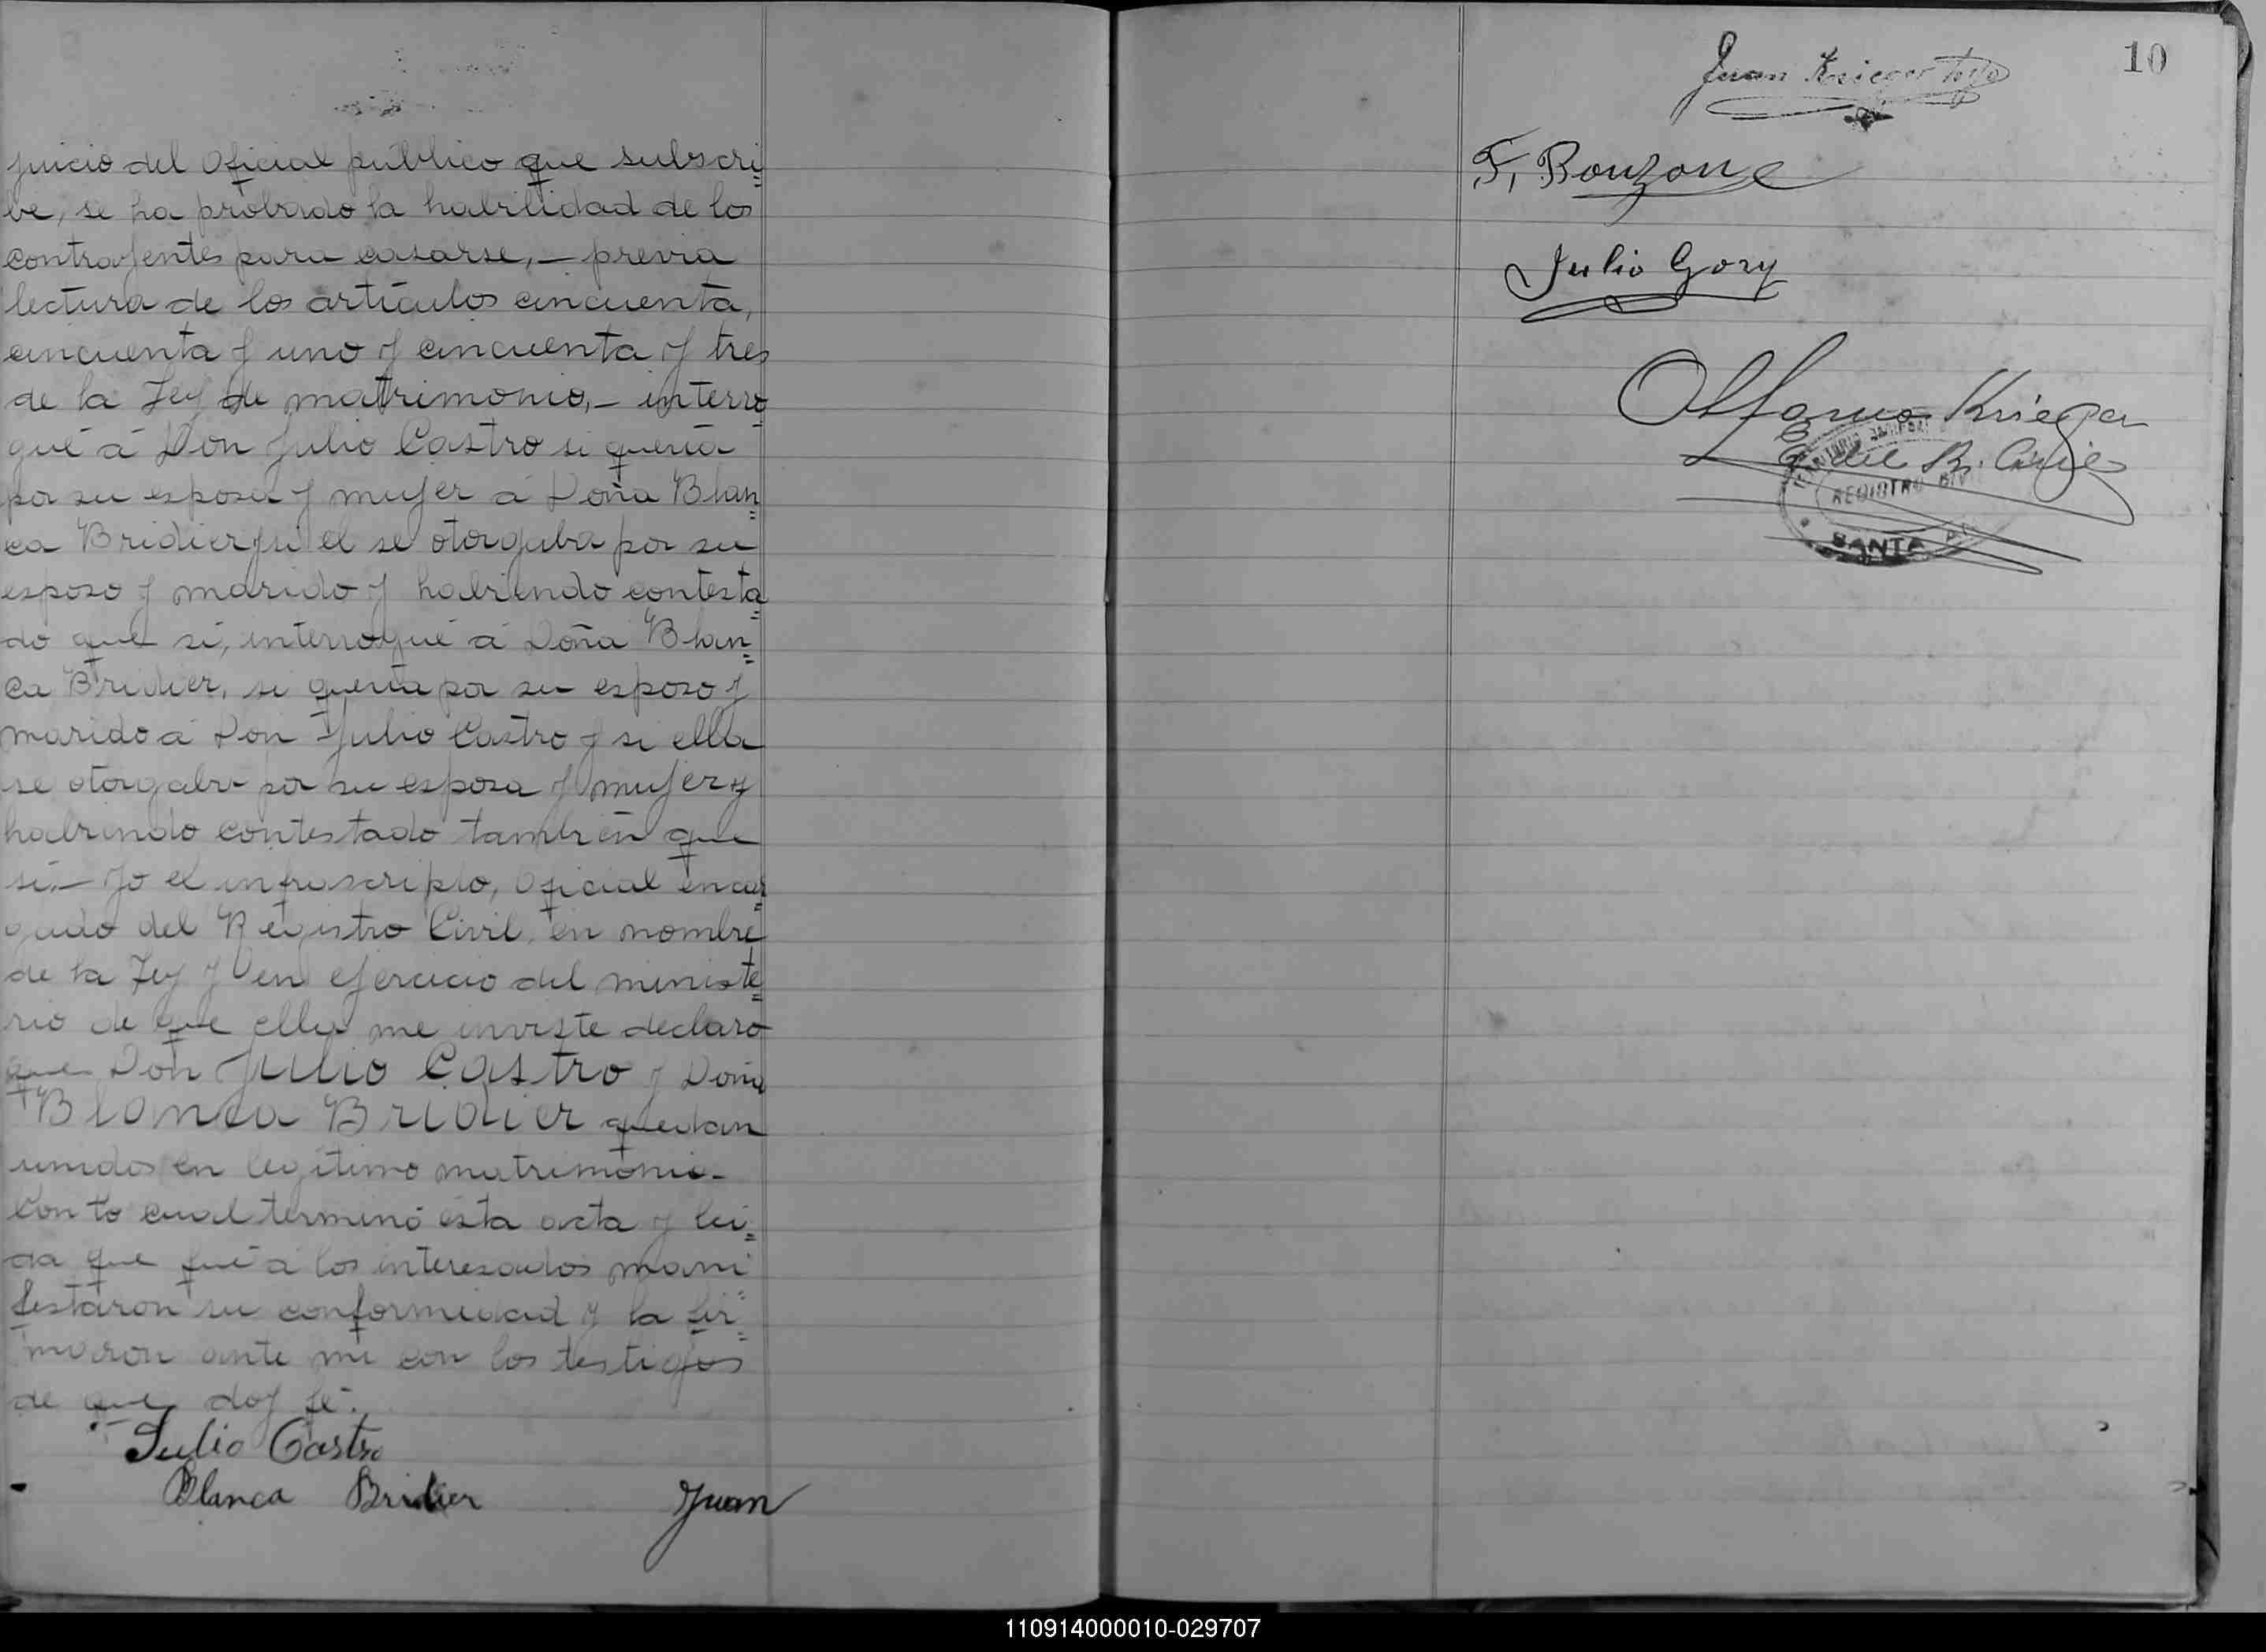 juicio del Oficial público que subscri=
be, se ha probado la habilidad de los
contrayentes para casarse,— previa
lectura de los artículos cincuenta,
cincuenta y uno y cincuenta y tres
de la Ley de matrimonio,— interro=
gué á Don Julio Castro si quería
por su esposa y mujer á Doña Blan=
ca Bridier y si el se otorgaba por su
esposo y marido y habiendo contesta=
do que si, interrogué á Doña Blan=
ca Bridier, si quería por su esposo y
marido á Don Julio Castro y si ella
se otorgaba por su esposa y mujer y
habiendo contestado también que
sí.— Yo el infrascripto, Oficial encar=
gado del Registro Civil, en nombre
de la Ley y en ejercicio del ministe=
rio de que ella me inviste declaro
que Don Julio Castro y Doña
Blanca Bridier quedan
unidos en legítimo matrimonio.-
Con lo cual terminó esta acta y leí=
da que fué á los interesados mani=
festaron su conformidad y la fir=
maron ante mi con los testigos
de que doy fé.
Julio Castro
Blanca Bridier Juan
10
Juan Krieger hijo
F, Bonzone
Julio Gory
Krieger
del R. Civil
REGISTRO CIVIL
SANTA
110914000010-029707